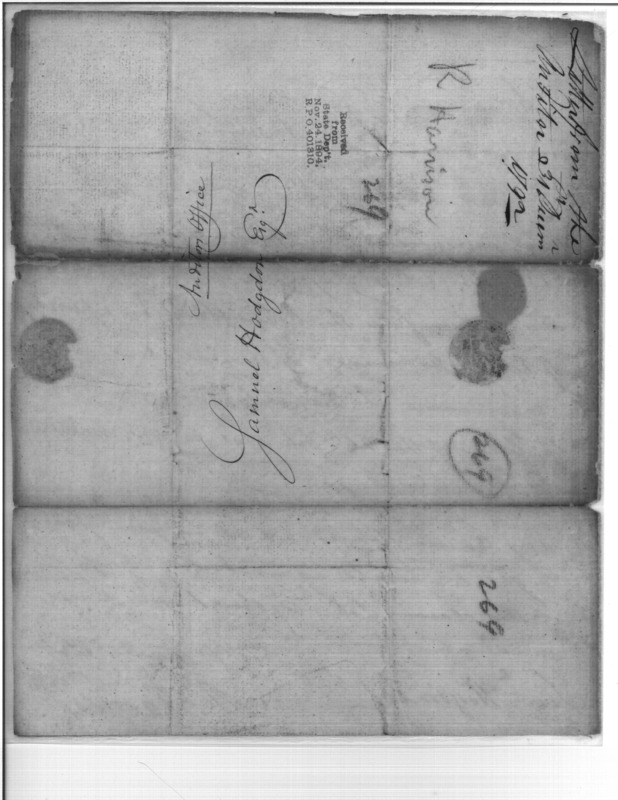 Letter from the
Auditor
1792
R Harrison
269
Received
from
State Dep't,
Nov. 24, 1894,
R P O 401310.
Samuel Hodgdon Esqr
Auditors Office
269
269